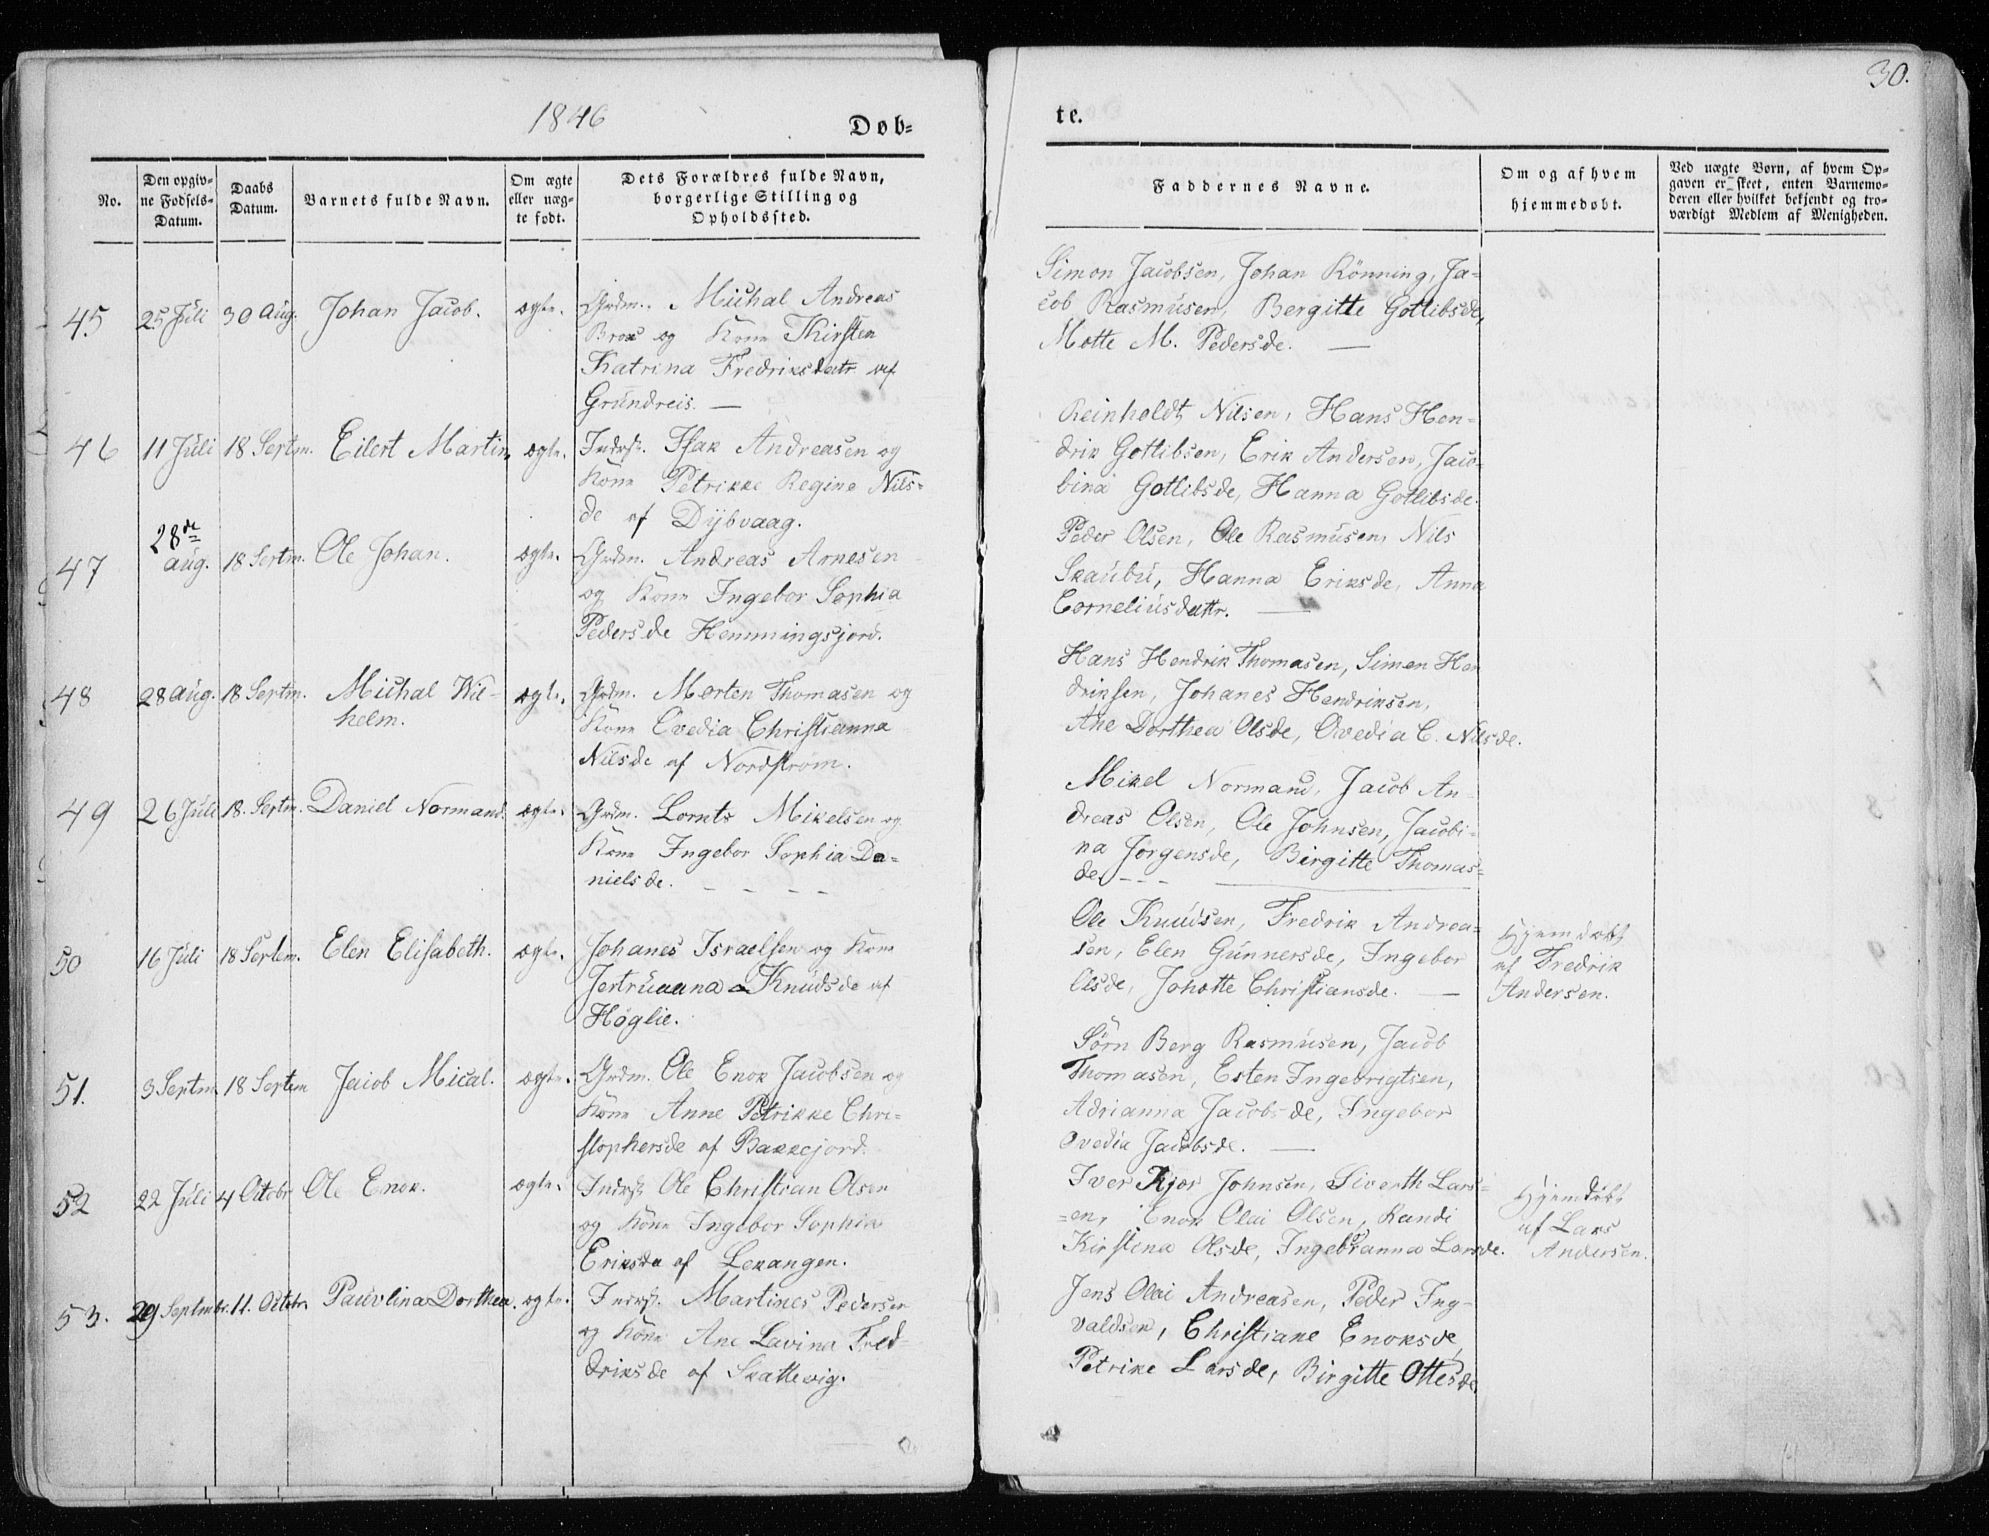 1846
Døb=
te.
30.
No.
Den opgiv=
ne Fødsels=
Datum.
Daabs
Datum.
Barnets fulde Navn.
Om ægte
eller uæg=
te født.
Dets Forældres fulde Navn,
borgerlige Stilling og
Opholdssted.
Faddernes Navne.
Om og af hvem
hjemmedøbt.
Ved uægte Børn, af hvem Op=
gaven er skeet, enten Barnemo=
deren eller hvilket bekjendt og tro=
værdigt Medlem af Menigheden.
45
25 Juli
30 Aug.
Johan Jacob.
ægte.
Grdm. Michal Andreas
Brox og Kone Kirsten
Katrina Fredriksdatr af
Grundreis. —
Simon Jacobsen, Johan Rönning, Ja=
cob Rasmusen, Bergitte Gotlibsde,
Motte M. Pedersde. —
46
11 Juli
18 Septm.
Eilert Martin,
ægte.
Indrst. Isak Andreasen og
Kone Petrikke Regine Nils=
de af Dybvaag.
Reinholdt Nilsen, Hans Hen=
drik Gotlibsen, Erik Andersen, Jaco=
bina Gotlibsde, Hanna Gotlibsde.
47
28de
aug.
18 Septm.
Ole Johan.
ægte.
Grdm. Andreas Arnesen
og Kone Ingebor Sophia
Pedersde Hemmingsjord.
Peder Olsen, Ole Rasmusen, Nils
Skaubu, Hanna Eriksde, Anna
Corneliusdattr. —
48
28 aug.
18 Septm.
Michal Wil=
helm.
ægte.
Grdm. Morten Thomasen og
Kone Ovedia Christianna
Nilsde af Nordstrøm.
Hans Hendrik Thomasen, Simen Hen
driksen, Johanes Hendriksen,
Ane Dorthea Olsde, Ovedia C. Nilsde.
49
26 Juli
18. Septm.
Daniel Normand.
ægte.
Grdm. Lornts Mikelsen og
Kone Ingebor Sophia Da=
nielsde. — — — —
Mikel Normand, Jacob An=
dreas Olsen, Ole Johnsen, Jacobi=
na Jörgensde, Birgitte Thomas=
de. — — —
50
16 Juli
18 Septem.
Elen Elisabeth.
ægte.
Johanes Israelsen og Kone
Jertruanna Knudsde af
Høglie.
Ole Knudsen, Fredrik Andrea=
sen, Elen Gunnersde, Ingebor
Olsde, Johotte Christiansde. —
Hjemdøbt
af Fredrik
Andersen.
51.
3 Septm.
18 Septem
Jaiob Mical.
ægte.
Grdm. Ole Enok Jacobsen og
Kone Anne Petrikke Chri=
stophersde af Bakkejord.
Sörn Berg Rasmusen, Jacob
Thomasen, Esten Ingebrigtsen,
Adrianna Jacobsde, Ingebor
Ovedia Jacobsde. —
52
22 Juli
4 Octobr
Ole Enok.
ægte.
Indrst. Ole Christian Olsen
og Kone Ingebor Sophia
Eriksde af Lekangen.
Iver Kjær Johnsen, Siverth Lars=
=en, Enok Olai Olsen, Randi
Kirstina Olsde, Ingebranna Larsde.
Hjemdøbt
af Lars
Andersen.
53.
29 Septmbr.
11. Octobr.
Pauvlina Dorthea.
ægte.
Indrst. Martines Pedersen
og Kone Ane Lavina Fred=
driksde af Skattevig.
Jens Olai Andreasen, Peder Ing=
valdsen, Christiane Enoksde,
Petrike Larsde, Birgitte Ottesde.